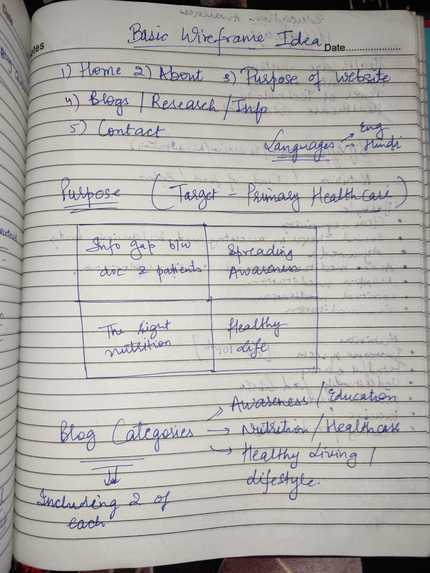 Basic Wireframe Idea
Date
1) Home 2) About 3) Purpose of Website
4) Blogs / Research / Info
5) Contact
Languages → Eng
→ Hindi
Purpose (Target - Primary Healthcare)
Info gap b/w
doc & patients
Spreading
Awareness
The right
nutrition
Healthy
life
Blog Categories
→ Awareness / Education
→ Nutrition / Healthcare
→ Healthy Living /
lifestyle.
Including 2 of
each